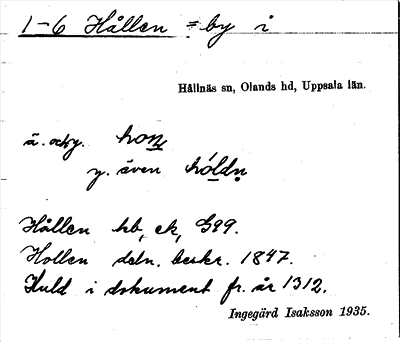 1-6 Hållen =by i
Hållnäs sn, Olands hd, Uppsala län.
ä. o. y.
y. även hóldn
Hållen hb, ek, G99.
Hollen deln. beskr. 1847.
Huld i dokument fr. år 1312.
Ingegärd Isaksson 1935.